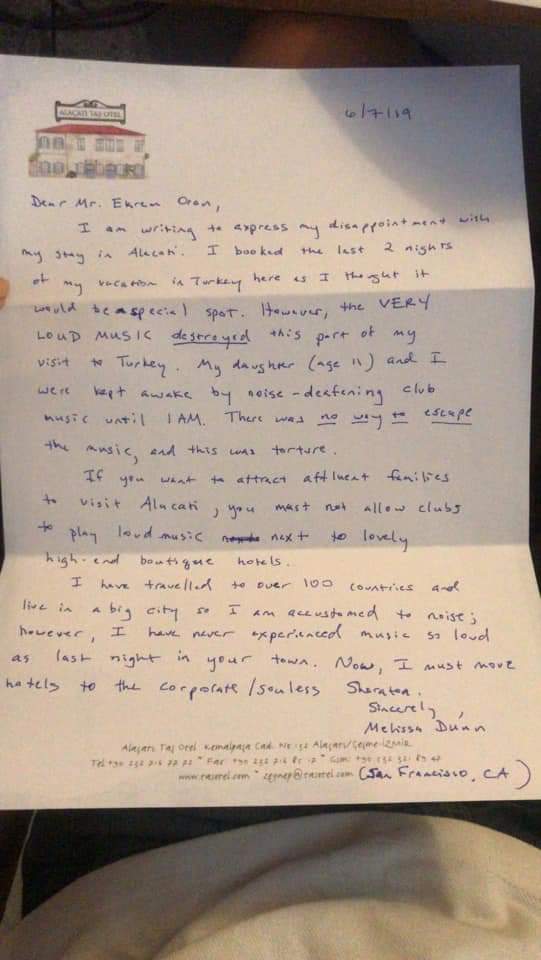 ALAÇATI TAŞ OTEL
6/7/19
Dear Mr. Ekrem Oran,
I am writing to express my disappointment with
my stay in Alacati. I booked the last 2 nights
of my vacation in Turkey here as I thought it
would be a special spot. However, the VERY
LOUD MUSIC destroyed this part of my
visit to Turkey. My daughter (age 11) and I
were kept awake by noise-deafening club
music until 1 AM. There was no way to escape
the music, and this was torture.
If you want to attract affluent families
to visit Alacati, you must not allow clubs
to play loud music next to lovely
high-end boutique hotels.
I have travelled to over 100 countries and
live in a big city so I am accustomed to noise;
however, I have never experienced music so loud
as last night in your town. Now, I must move
hotels to the corporate/souless Sheraton.
Sincerely,
Melissa Dunn
Alaçatı Taş Otel Kemalpaşa Cad. No:132 Alaçatı/Çeşme-İZMİR
Tel: +90 232 716 77 72 * Fax: +90 232 716 85 17 * Gsm: +90 532
www.tasotel.com * zeynep@tasotel.com
(San Francisco, CA)